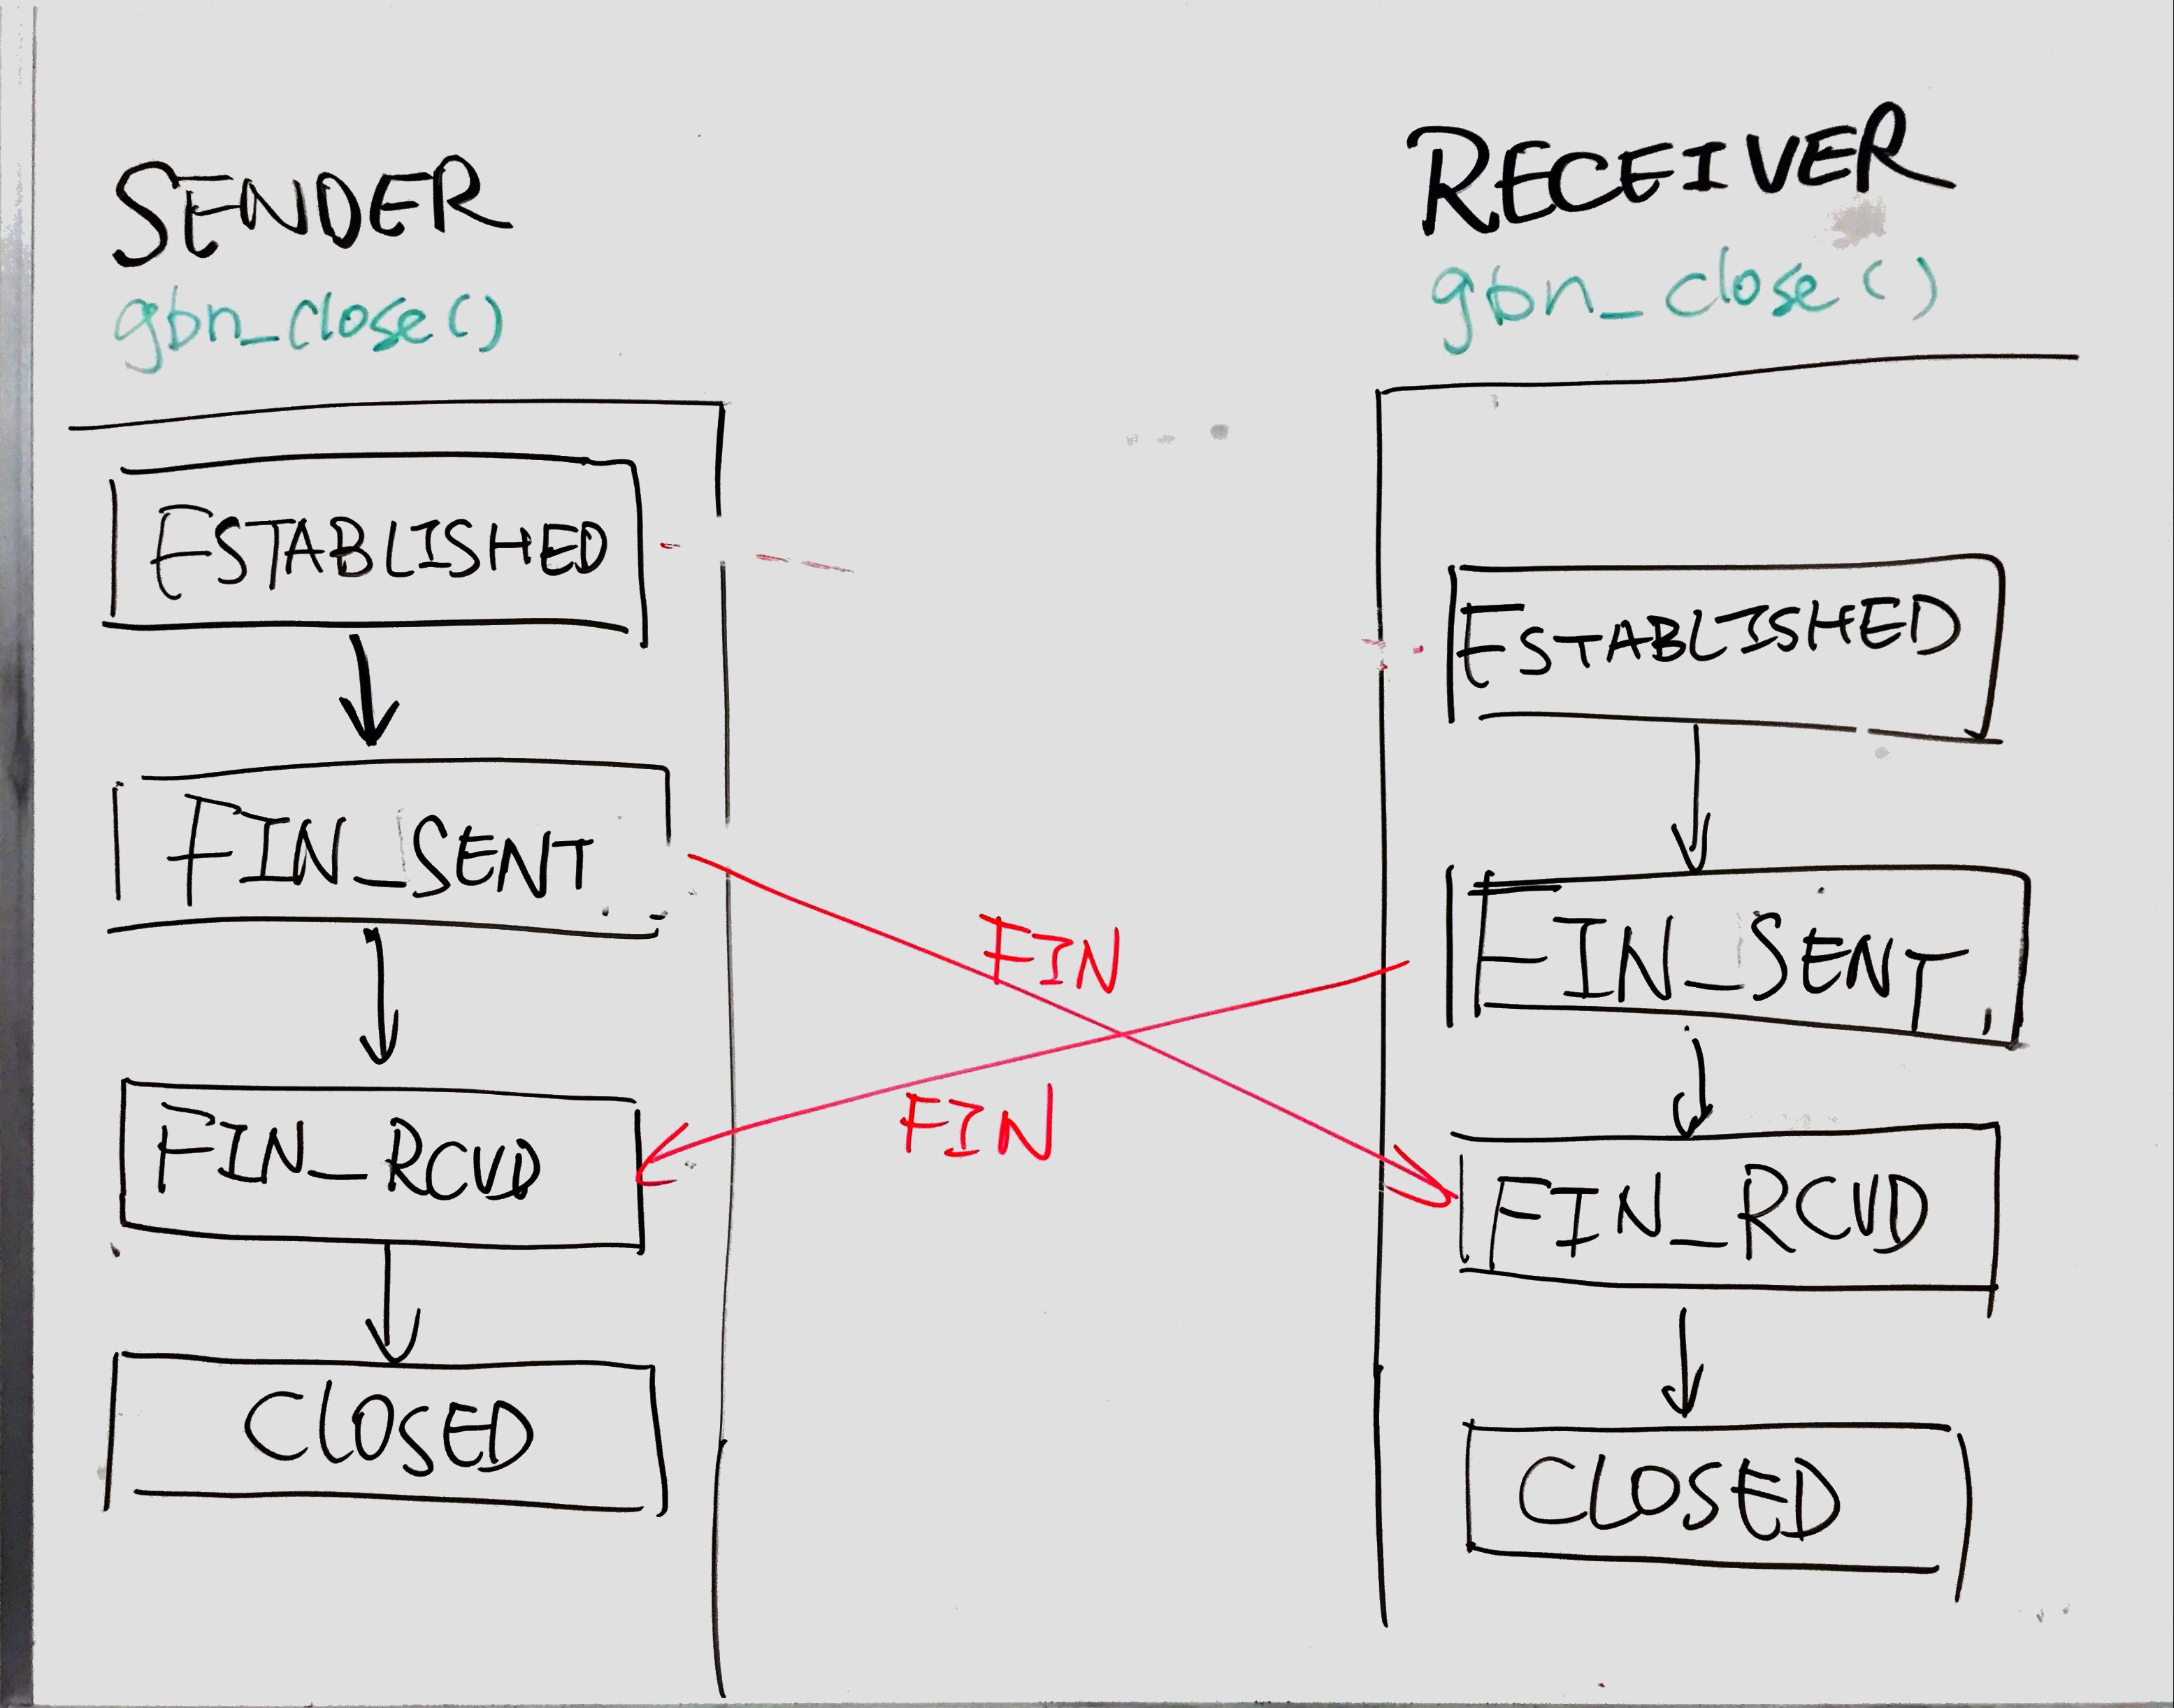 SENDER
gbn_close()
ESTABLISHED
FIN_SENT
FIN_RCVD
CLOSED
FIN
FIN
RECEIVER
gbn_close()
ESTABLISHED
FIN_SENT
FIN_RCVD
CLOSED